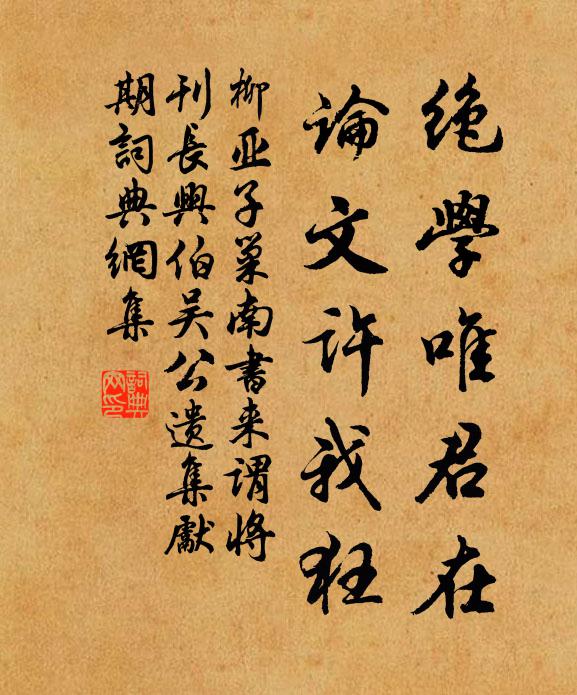 绝学唯君在
論文许我狂
柳亚子巢南書来谓將
刊長興伯吴公遗集獻
期詞典網集
詞典網印